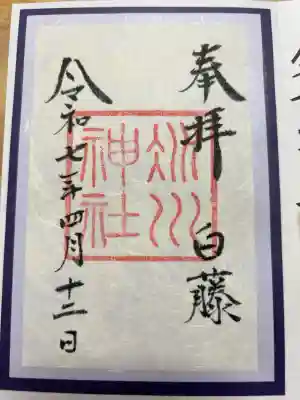 奉拝 白藤
冰川
神社
令和七年四月十二日